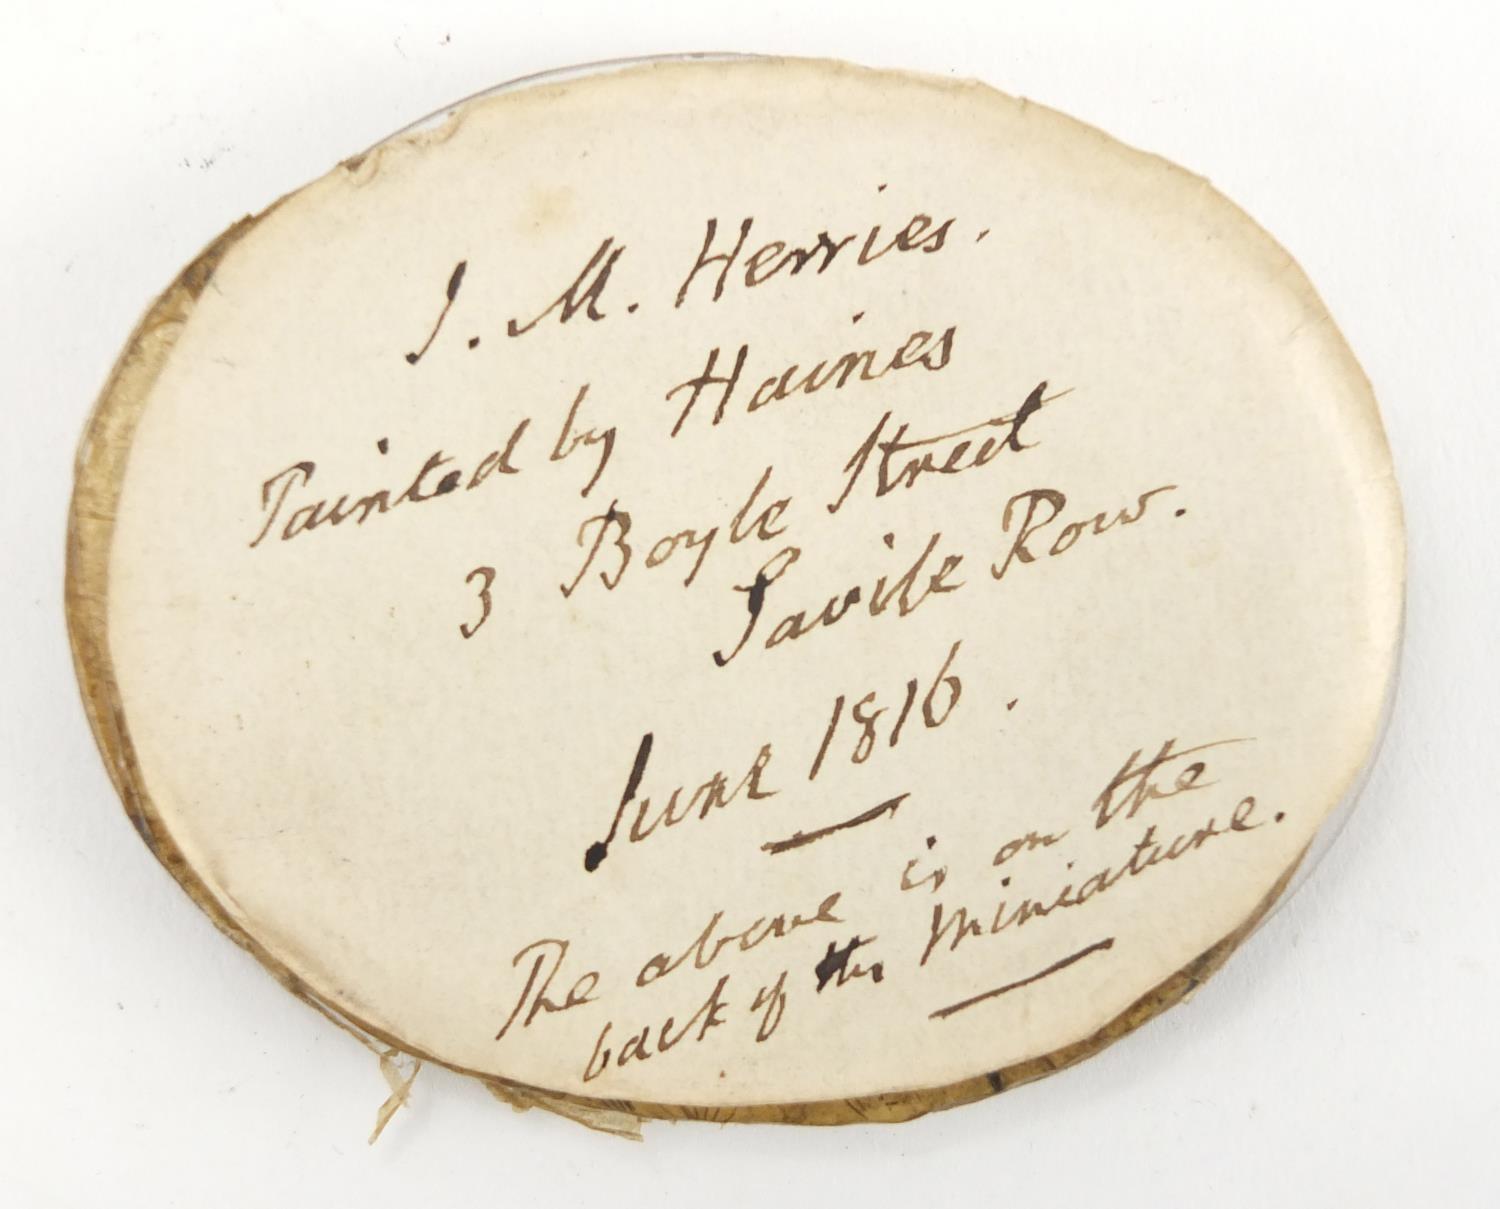 J. M. Herries.
Painted by Haines
3 Boyle Street
Savile Row.
June 1816.
The above is on the
back of the Miniature.